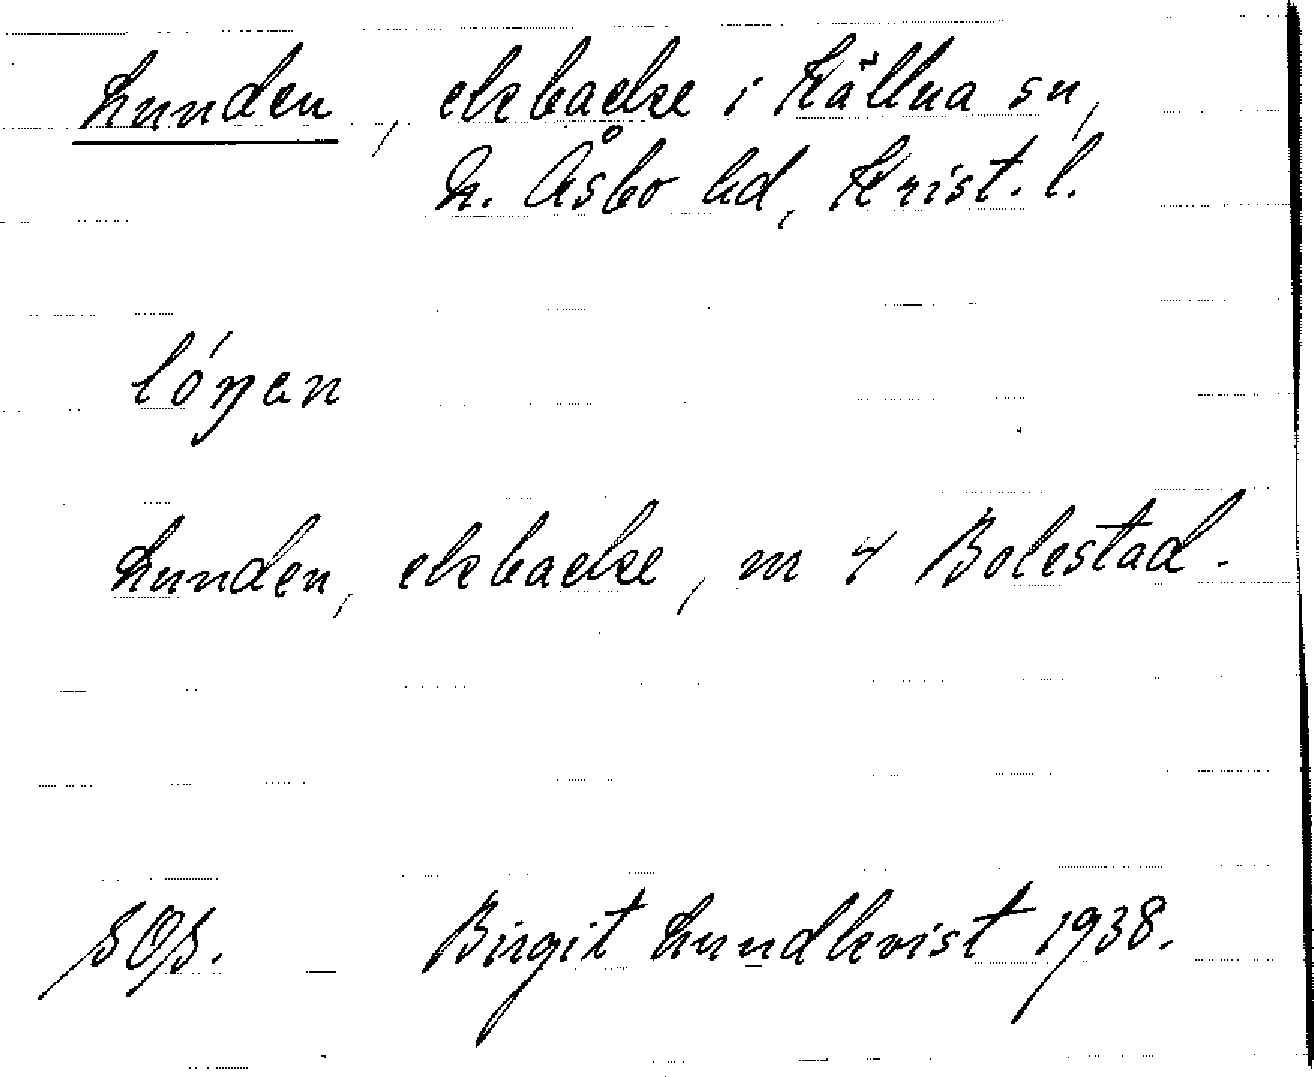 Lunden, ekbacke i Källna sn,
N. Åsbo hd, Krist. l.
lóŋan
Lunden, ekbacke, m 4 Bolestad.
SOS. — Birgit Lundkvist 1938.